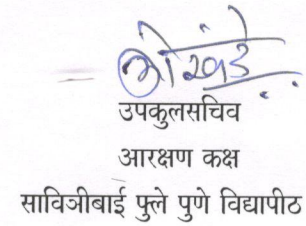 उपकुलसचिव
आरक्षण कक्ष
सावित्रीबाई फुले पुणे विद्यापीठ